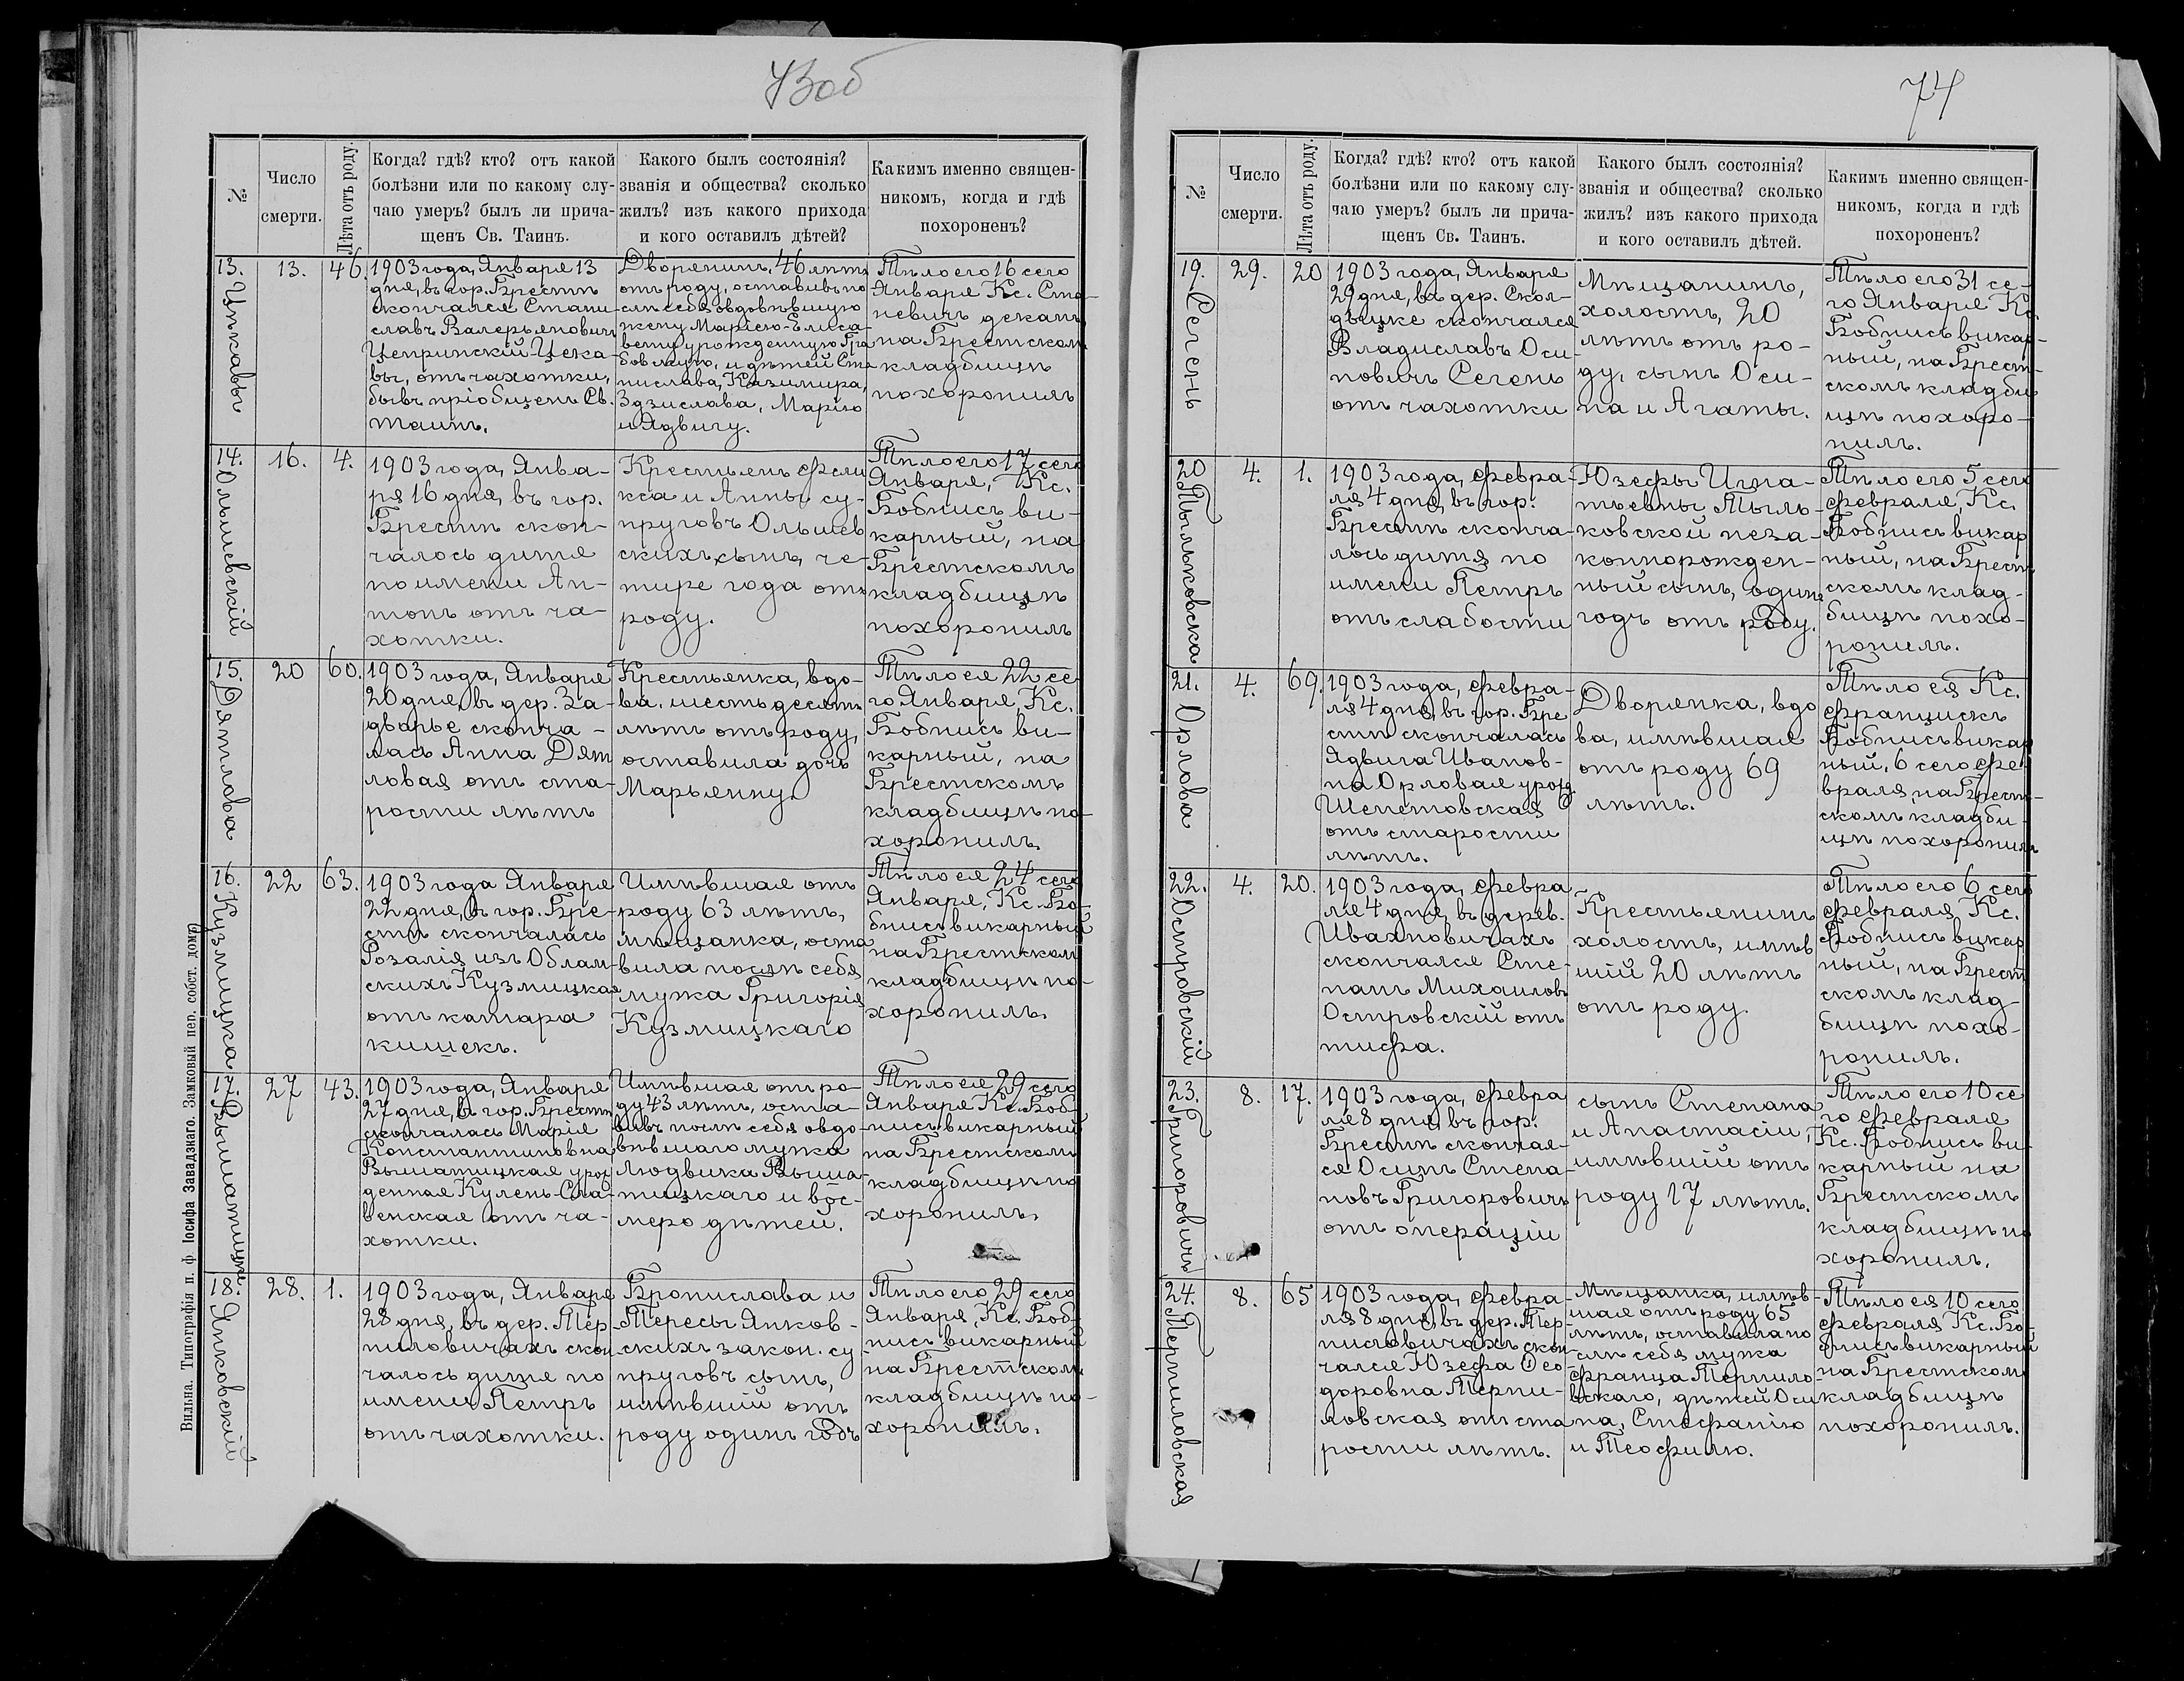 73об
№
Число
смерти.
Лѣта отъ роду.
Когда? гдѣ? кто? отъ какой
болѣзни или по какому слу-
чаю умеръ? былъ ли прича-
щенъ Св. Таинъ.
Какого былъ состоянія?
званія и общества? сколько
жилъ? изъ какого прихода
и кого оставилъ дѣтей?
Какимъ именно священ-
никомъ, когда и гдѣ
похороненъ?
13.
Цѣкавы
13.
46.
1903 года, Января 13
дня, въ гор. Брестѣ
скончался Стани-
славъ Валерьяновичъ
Цепринскій-Цека-
вы, отъ чахотки,
бывъ пріобщенъ Св.
Таинъ.
Дворянинъ, 46 лѣтъ
отъ роду, оставивъ по
слѣ себя овдовѣвшую
жену Марію-Елиса-
вету урожденную Гра
бовскую, и дѣтей Ста
нислава, Казимира,
Здзислава, Марію
и Ядвигу.
Тѣло его 16 сего
Января Кс. Ста-
невичъ деканъ
на Брестскомъ
кладбищѣ
похоронилъ
14.
Ольшевскій
16.
4.
1903 года, Янва-
ря 16 дня, въ гор.
Брестѣ скон-
чалось дитя
по имени Ан-
тонъ отъ ча-
хотки.
Крестьянъ Фели
кса и Анны су-
пруговъ Ольшев
скихъ сынъ, че-
тыре года отъ
роду.
Тѣло его 17 сего
Января, Кс.
Бобнисъ ви-
карный, на
Брестскомъ
кладбищѣ
похоронилъ
15.
Дятлова
20
60.
1903 года, Января
20 дня, въ дер. За-
дворье сконча-
лась Анна Дят
ловая отъ ста-
рости лѣтъ
Крестьянка, вдо-
ва, шестьдесятъ
лѣтъ отъ роду,
оставила дочь
Марьянну.
Тѣло ея 22 се
го Января, Кс.
Бобнисъ ви-
карный, на
Брестскомъ
кладбищѣ по-
хоронилъ.
16.
Кузмицка
22
63.
1903 года Января
22 дня, въ гор. Бре-
стѣ скончалась
Розалія изъ Облам-
скихъ Кузмицкая
отъ катара
кишекъ.
Имѣвшая отъ
роду 63 лѣтъ,
мѣщанка, оста
вила послѣ себя
мужа Григорія
Кузмицкаго
Тѣло ея 24 сего
Января, Кс. Бо-
бнисъ викарный
на Брестскомъ
кладбищѣ по-
хоронилъ.
17.
Вышатицка
27
43.
1903 года, Января
27 дня, въ гор. Брестѣ
скончалась Марія
Константиновна
Вышатицкая урож
денная Кулень-Сла-
венская отъ ча-
хотки.
Имѣвшая отъ ро-
ду 43 лѣтъ, оста-
вивъ послѣ себя овдо-
вѣвшаго мужа
Людвика Выша-
тицкаго и вос-
меро дѣтей.
Тѣло ея 29 сего
Января Кс. Боб-
нисъ викарный
на Брестскомъ
кладбищѣ по
хоронилъ.
18.
Янковскій
28.
1.
1903 года, Января
28 дня, въ дер. Тер-
пиловичахъ скон
чалось дитя по
имени Петръ
отъ чахотки.
Бронислава и
Тересы Янков-
скихъ закон. су
пруговъ сынъ,
имѣвшій отъ
роду одинъ годъ
Тѣло его 29 сего
Января, Кс. Боб-
нисъ викарный
на Брестскомъ
кладбищѣ по-
хоронилъ.
Вильна. Типографія п. ф. Іосифа Завадзкаго. Замковый пер. собст. домъ
74
№
Число
смерти.
Лѣта отъ роду.
Когда? гдѣ? кто? отъ какой
болѣзни или по какому слу-
чаю умеръ? былъ ли прича-
щенъ Св. Таинъ.
Какого былъ состоянія?
званія и общества? сколько
жилъ? изъ какого прихода
и кого оставилъ дѣтей.
Какимъ именно священ-
никомъ, когда и гдѣ
похороненъ?
19.
Сегень
29.
20
1903 года, Января
29 дня, въ дер. Скол-
дыцке скончался
Владиславъ Оси-
повичъ Сегень
отъ чахотки
Мѣщанинъ,
холостъ, 20
лѣтъ отъ ро-
ду, сынъ Оси-
па и Агаты.
Тѣло его 31 се-
го Января Кс.
Бобнисъ викар-
ный, на Брест-
скомъ кладби
щѣ похоро-
нилъ.
20
Тыльковска
4.
1.
1903 года, Февра-
ля 4 дня, въ гор.
Брестѣ сконча-
лось дитя по
имени Петръ
отъ слабости
Юзефы Игна-
тьевны Тыль-
ковской неза-
коннорожден-
ный сынъ, одинъ
годъ отъ роду.
Тѣло его 5 сего
Февраля, Кс.
Бобнисъ викар
ный, на Брест
скомъ клад-
бищѣ похо-
ронилъ.
21.
Орлова
4.
69.
1903 года, Февра-
ля 4 дня, въ гор. Бре
стѣ скончалась
Ядвига Иванов-
на Орловая урож.
Шепетовская
отъ старости
лѣтъ.
Дворянка, вдо
ва, имѣвшая
отъ роду 69
лѣтъ.
Тѣло ея Кс.
Францискъ
Бобнисъ викар
ный, 6 сего Фе-
враля, на Брест-
скомъ кладби-
щѣ похоронилъ
22.
Островскій
4.
20.
1903 года, Февра
ля 4 дня, въ дерев.
Ивахновичахъ
скончался Сте-
панъ Михаиловъ
Островскій отъ
тифа.
Крестьянинъ
холостъ, имѣв
шій 20 лѣтъ
отъ роду.
Тѣло его 6 сего
Февраля Кс.
Бобнисъ викар
ный, на Брест
скомъ клад-
бищѣ похо-
ронилъ.
23.
Григоровичъ
8.
17.
1903 года, Февра
ля 8 дня, въ гор.
Брестѣ скончал-
ся Осипъ Степа-
новъ Григоровичъ
отъ операціи
сынъ Степана
и Анастасіи,
имѣвшій отъ
роду 17 лѣтъ.
Тѣло его 10 се
го Февраля
Кс. Бобнисъ ви-
карный на
Брестскомъ
кладбищѣ по
хоронилъ.
24.
Терпиловская
8.
65
1903 года, Февра-
ля 8 дня, въ дер. Тер-
пиловичахъ скон
чался Юзефа Ѳео-
доровна Терпи-
ловская отъ ста
рости лѣтъ.
Мѣщанка, имѣв-
шая отъ роду 65
лѣтъ, оставила по
слѣ себя мужа
Франца Терпило-
вскаго, дѣтей Оси
па, Стефанію
и Теофилю.
Тѣло ея 10 сего
Февраля Кс. Бо-
бнисъ викарный
на Брестскомъ
кладбищѣ
похоронилъ.